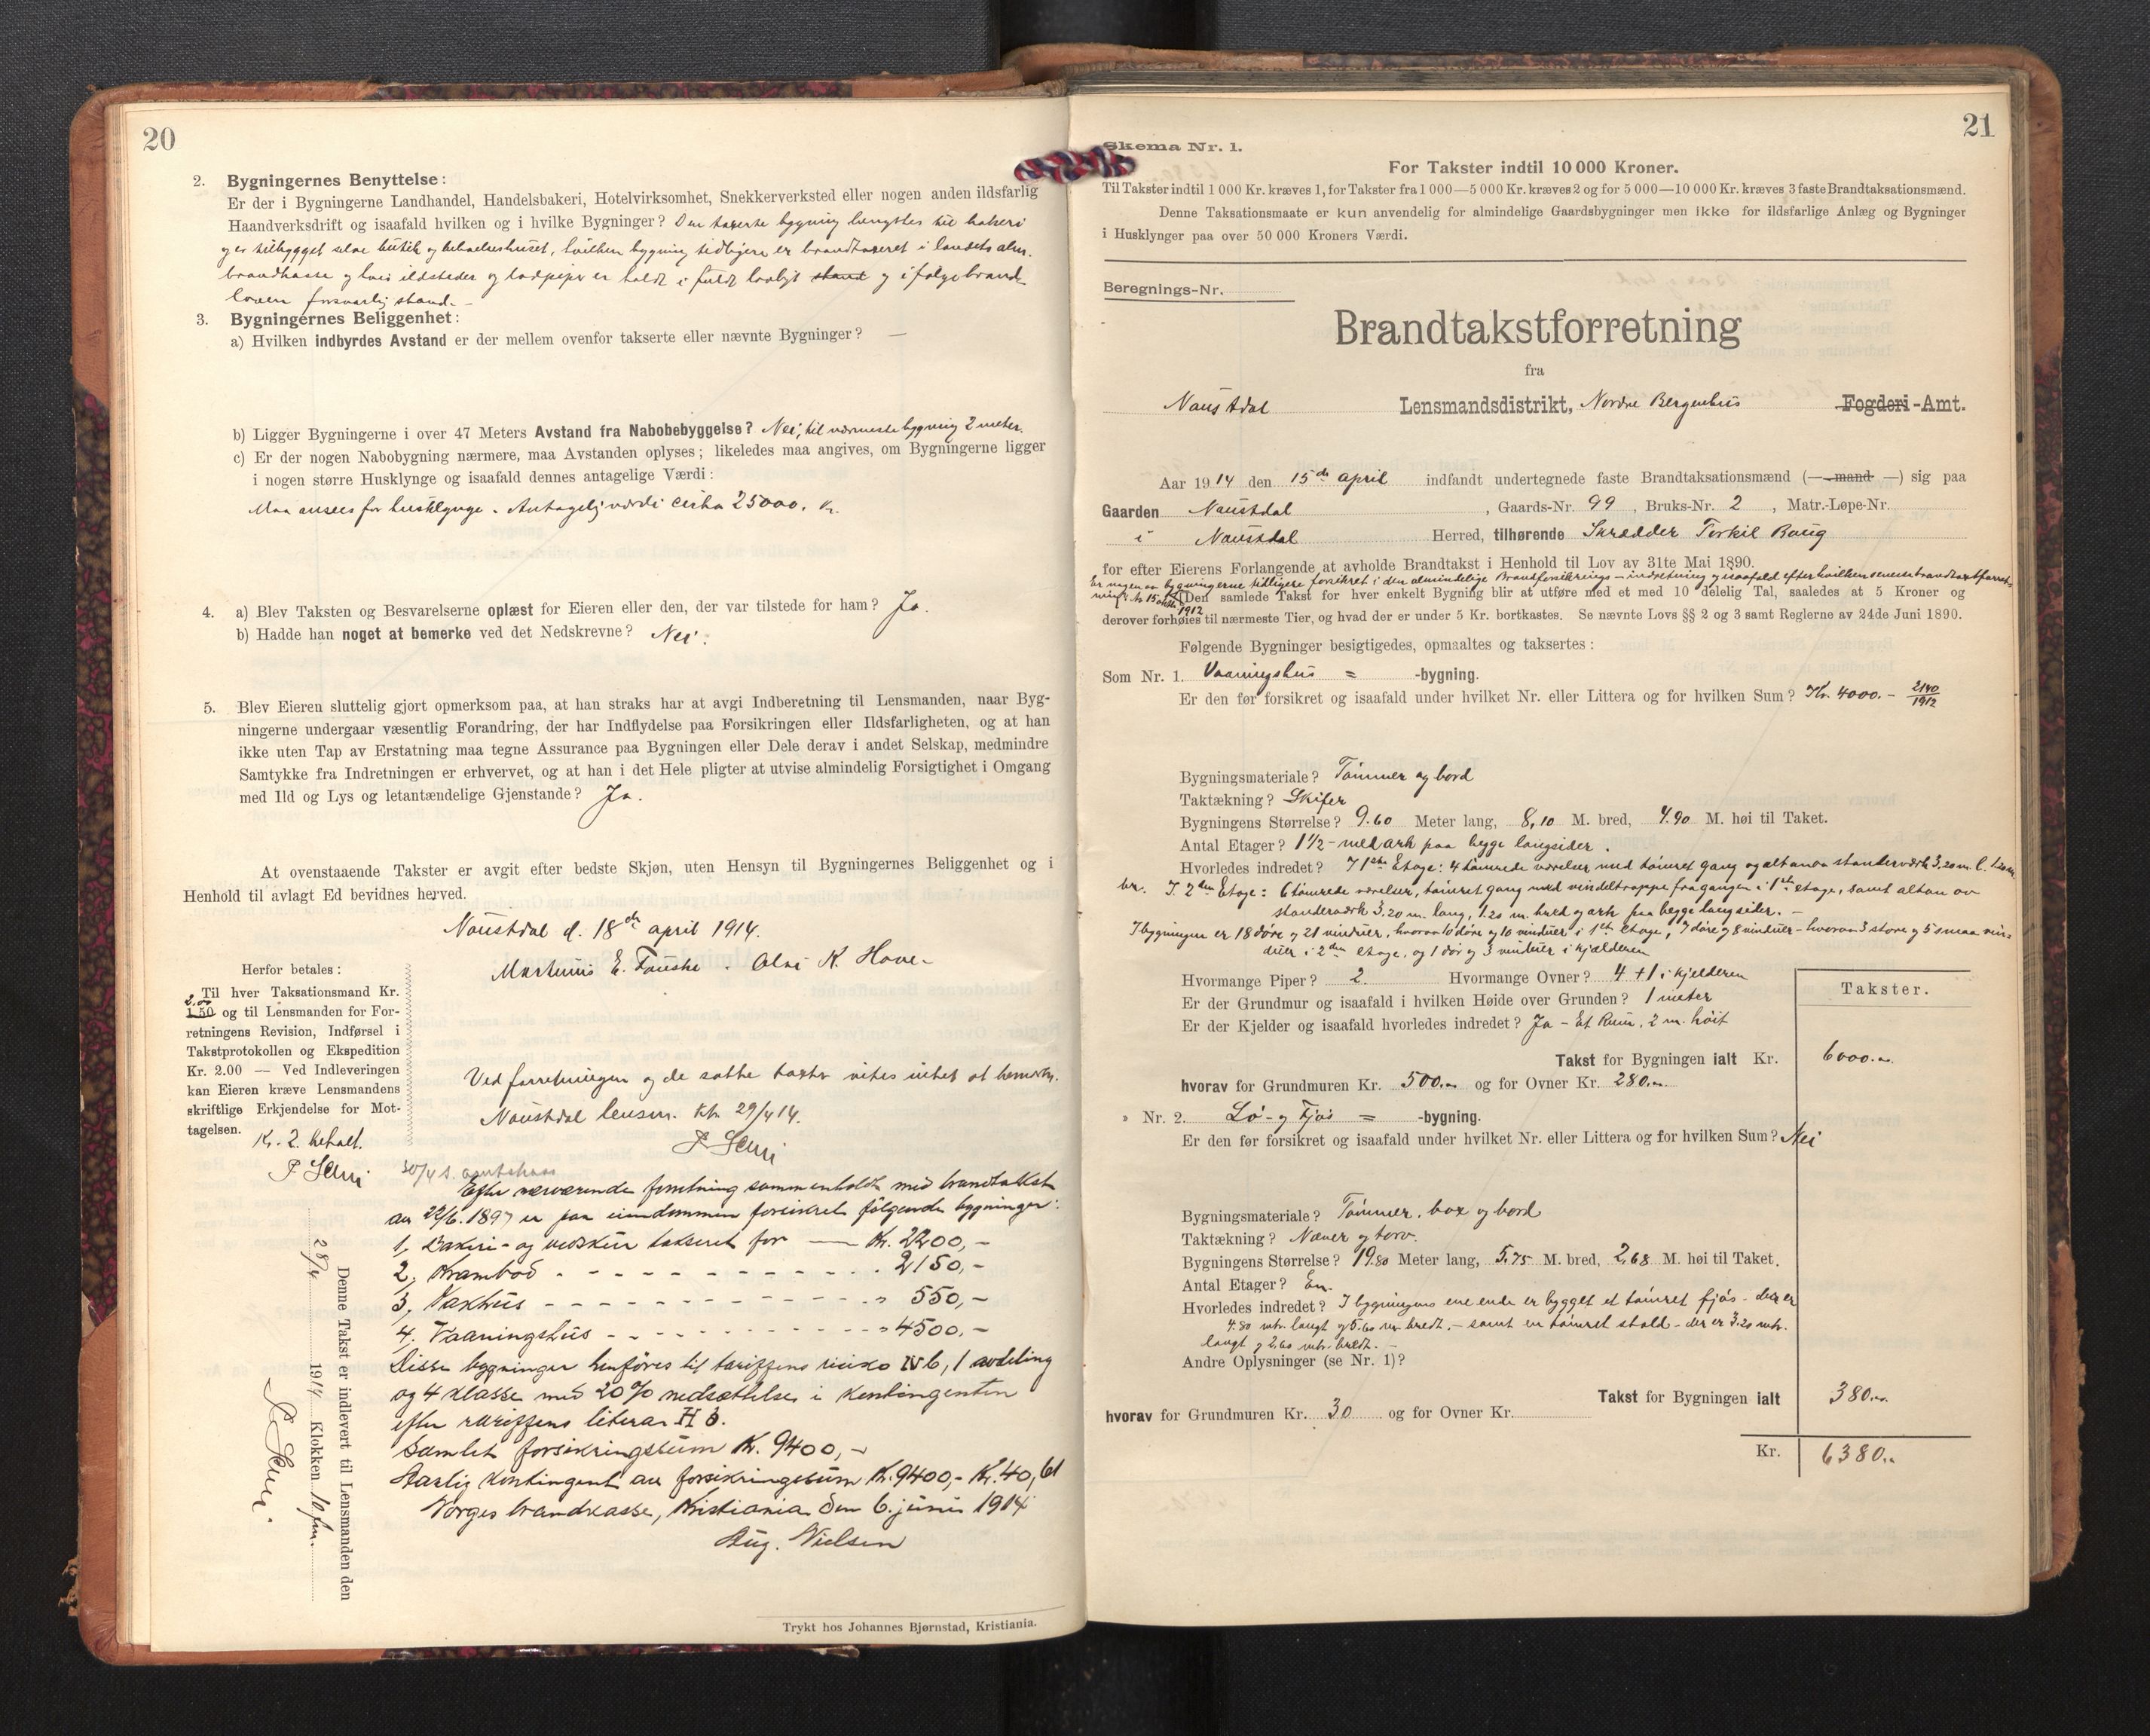 20
2. Bygningernes Benyttelse:
Er der i Bygningerne Landhandel, Handelsbakeri, Hotelvirksomhet, Snekkerverksted eller nogen anden ildsfarlig
Haandverksdrift og isaafald hvilken og i hvilke Bygninger? Den takserte bygning benyttes til bakeri
og er tilbygget selve butik og beboelseshuset, hvilken bygning tidligere er brandtaxeret i landets alm.
brandkasse og hvis ildsteder og er holdt i fuldt lovligt stand og ifølge brand-
loven forsvarlig stand. -
3. Bygningernes Beliggenhet:
a) Hvilken indbyrdes Avstand er der mellem ovenfor takserte eller nævnte Bygninger? —
b) Ligger Bygningerne i over 47 Meters Avstand fra Nabobebyggelse? Nei, til nærmeste bygning 2 meter.
c) Er der nogen Nabobygning nærmere, maa Avstanden oplyses; likeledes maa angives, om Bygningerne ligger
i nogen større Husklynge og isaafald dennes antagelige Værdi:
Maa ansees for husklynge. Antagelig værdi cirka 25000. Kr.
4. a) Blev Taksten og Besvarelserne oplæst for Eieren eller den, der var tilstede for ham? Ja.
b) Hadde han noget at bemerke ved det Nedskrevne? Nei.
5. Blev Eieren sluttelig gjort opmerksom paa, at han straks har at avgi Indberetning til Lensmanden, naar Byg-
ningerne undergaar væsentlig Forandring, der har Indflydelse paa Forsikringen eller Ildsfarligheten, og at han
ikke uten Tap av Erstatning maa tegne Assurance paa Bygningen eller Dele derav i andet Selskap, medmindre
Samtykke fra Indretningen er erhvervet, og at han i det Hele pligter at utvise almindelig Forsigtighet i Omgang
med Ild og Lys og letantændelige Gjenstande? Ja.
At ovenstaaende Takster er avgit efter bedste Skjøn, uten Hensyn til Bygningernes Beliggenhet og i
Henhold til avlagt Ed bevidnes herved.
Naustdal d. 18de april 1914.
Martinus E. Fauske. K. Hove-
Herfor betales:
Til hver Taksationsmand Kr.
2.00
1.50 og til Lensmanden for For-
retningens Revision, Indførsel i
Takstprotokollen og Ekspedition
Kr. 2.00 — Ved Indleveringen
kan Eieren kræve Lensmandens
skriftlige Erkjendelse for Mot-
tagelsen.
Kr. 2. betalt.
Ved forretningen og de satte taxter vites intet at bemerke.
Naustdal lensm. kt. 29/4 14.
30/4 s. amtskass
Efter nærværende forretning sammenholdt med brandtakst
av 22/6. 1897 er paa eiendommen forsikret følgende bygninger:
1, Bakeri- og vedskur takseret for — Kr. 2200,-
2, Krambod - - - 2150,-
3, Vaskhus - - - " 550,-
4. Vaaningshus - - - " 4500,-
Disse bygninger henføres til tariffens risiko IV b, 1 avdeling
og 4 klasse med 20 % nedsættelse i kontingenten
efter tariffens litera H b.
Samlet forsikringssum Kr. 9400,-
Aarlig kontingent av forsikringssum Kr. 9400,- Kr. 40,61
Norges brandkasse, Kristiania den 6. juni 1914
Aug. Nielsen
Denne Takst er indlevert til Lensmanden den
28/4 1914 Klokken 10 fm.
Trykt hos Johannes Bjørnstad, Kristiania.
21
Skema Nr. 1.
For Takster indtil 10 000 Kroner.
Til Takster indtil 1 000 Kr. kræves 1, for Takster fra 1 000—5 000 Kr. kræves 2 og for 5 000—10 000 Kr. kræves 3 faste Brandtaksationsmænd.
Denne Taksationsmaate er kun anvendelig for almindelige Gaardsbygninger men ikke for ildsfarlige Anlæg og Bygninger
i Husklynger paa over 50 000 Kroners Værdi.
Beregnings-Nr.
Brandtakstforretning
fra
Naustdal Lensmandsdistrikt, Nordre Bergenhus Fogderi-Amt.
Aar 1914 den 15de april indfandt undertegnede faste Brandtaksationsmænd (— mand —) sig paa
Gaarden Naustdal, Gaards-Nr. 99, Bruks-Nr. 2, Matr.-Løpe-Nr.
i Naustdal Herred, tilhørende Skrædder Torkil Raug
for efter Eierens Forlangende at avholde Brandtakst i Henhold til Lov av 31te Mai 1890.
Er nogen av bygningerne tidligere forsikret i den almindelige Brandforsikrings-indretning og isaafald efter hvilken seneste brandtakstforret-
ning? Ja 15 1912
Den samlede Takst for hver enkelt Bygning blir at utføre med et med 10 delelig Tal, saaledes at 5 Kroner og
derover forhøies til nærmeste Tier, og hvad der er under 5 Kr. bortkastes. Se nævnte Lovs §§ 2 og 3 samt Reglerne av 24de Juni 1890.
Følgende Bygninger besigtigedes, opmaaltes og taksertes:
Som Nr. 1. Vaaningshus = -bygning.
Er den før forsikret og isaafald under hvilket Nr. eller Littera og for hvilken Sum? Kr. 4000.- 2140/1912
Bygningsmateriale? Tømmer og bord
Taktækning? Skifer
Bygningens Størrelse? 9.60 Meter lang, 8,10 M. bred, 4.90 M. høi til Taket.
Antal Etager? 1½ - med ark paa begge langsider.
Hvorledes indredet? I 1ste Etage: 4 tømrede værelser med tømret gang og altan av standerværk 3.20 m. l. 1.20 m.
br. I 2den Etage: 6 tømrede værelser, tømret gang med vindeltrappe fra gangen i 1ste etage, samt altan av
standerværk 3.20 m. lang, 1.20 m. bred og ark paa begge langsider. -
I bygningen er 18 døre og 21 vinduer, hvorav 10 døre og 10 vinduer i 1ste etage, 7 døre og 8 vinduer - hvorav 3 store og 5 smaa vin-
duer i 2den etage, og 1 dør og 3 vinduer i kjælderen
Hvormange Piper? 2. Hvormange Ovner? 4 + 1 i kjelderen
Er der Grundmur og isaafald i hvilken Høide over Grunden? 1 meter
Er der Kjelder og isaafald hvorledes indredet? Ja - Et Rum, 2 m. høit
Takster.
Takst for Bygningen ialt Kr. 6000.-
hvorav for Grundmuren Kr. 500.- og for Ovner Kr. 280.-
» Nr. 2. Lø- og Fjøs = -bygning.
Er den før forsikret og isaafald under hvilket Nr. eller Littera og for hvilken Sum? Nei
Bygningsmateriale? Tømmer, og bord
Taktækning? Næver og torv.
Bygningens Størrelse? 19.80 Meter lang, 5.75 M. bred, 2,68 M. høi til Taket.
Antal Etager? En.
Hvorledes indredet? I bygningens ene ende er bygget et tømret fjøs - der er
4.80 mtr. langt og 5.60 mtr bredt. - samt en tømret stald - der er 3.20 mtr.
langt og 2.60 mtr. bredt. -
Andre Oplysninger (se Nr. 1)?
Takst for Bygningen ialt 380.-
hvorav for Grundmuren Kr. 30 og for Ovner Kr.
Kr. 6380.-